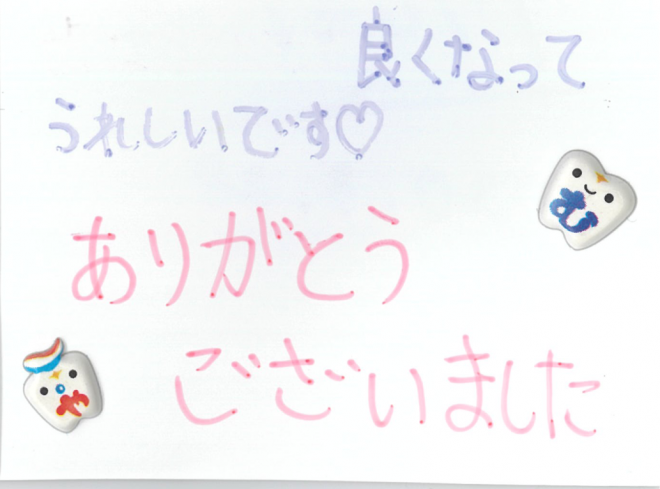 良くなって
うれしいです♡
む
ありがとう
ございました
や